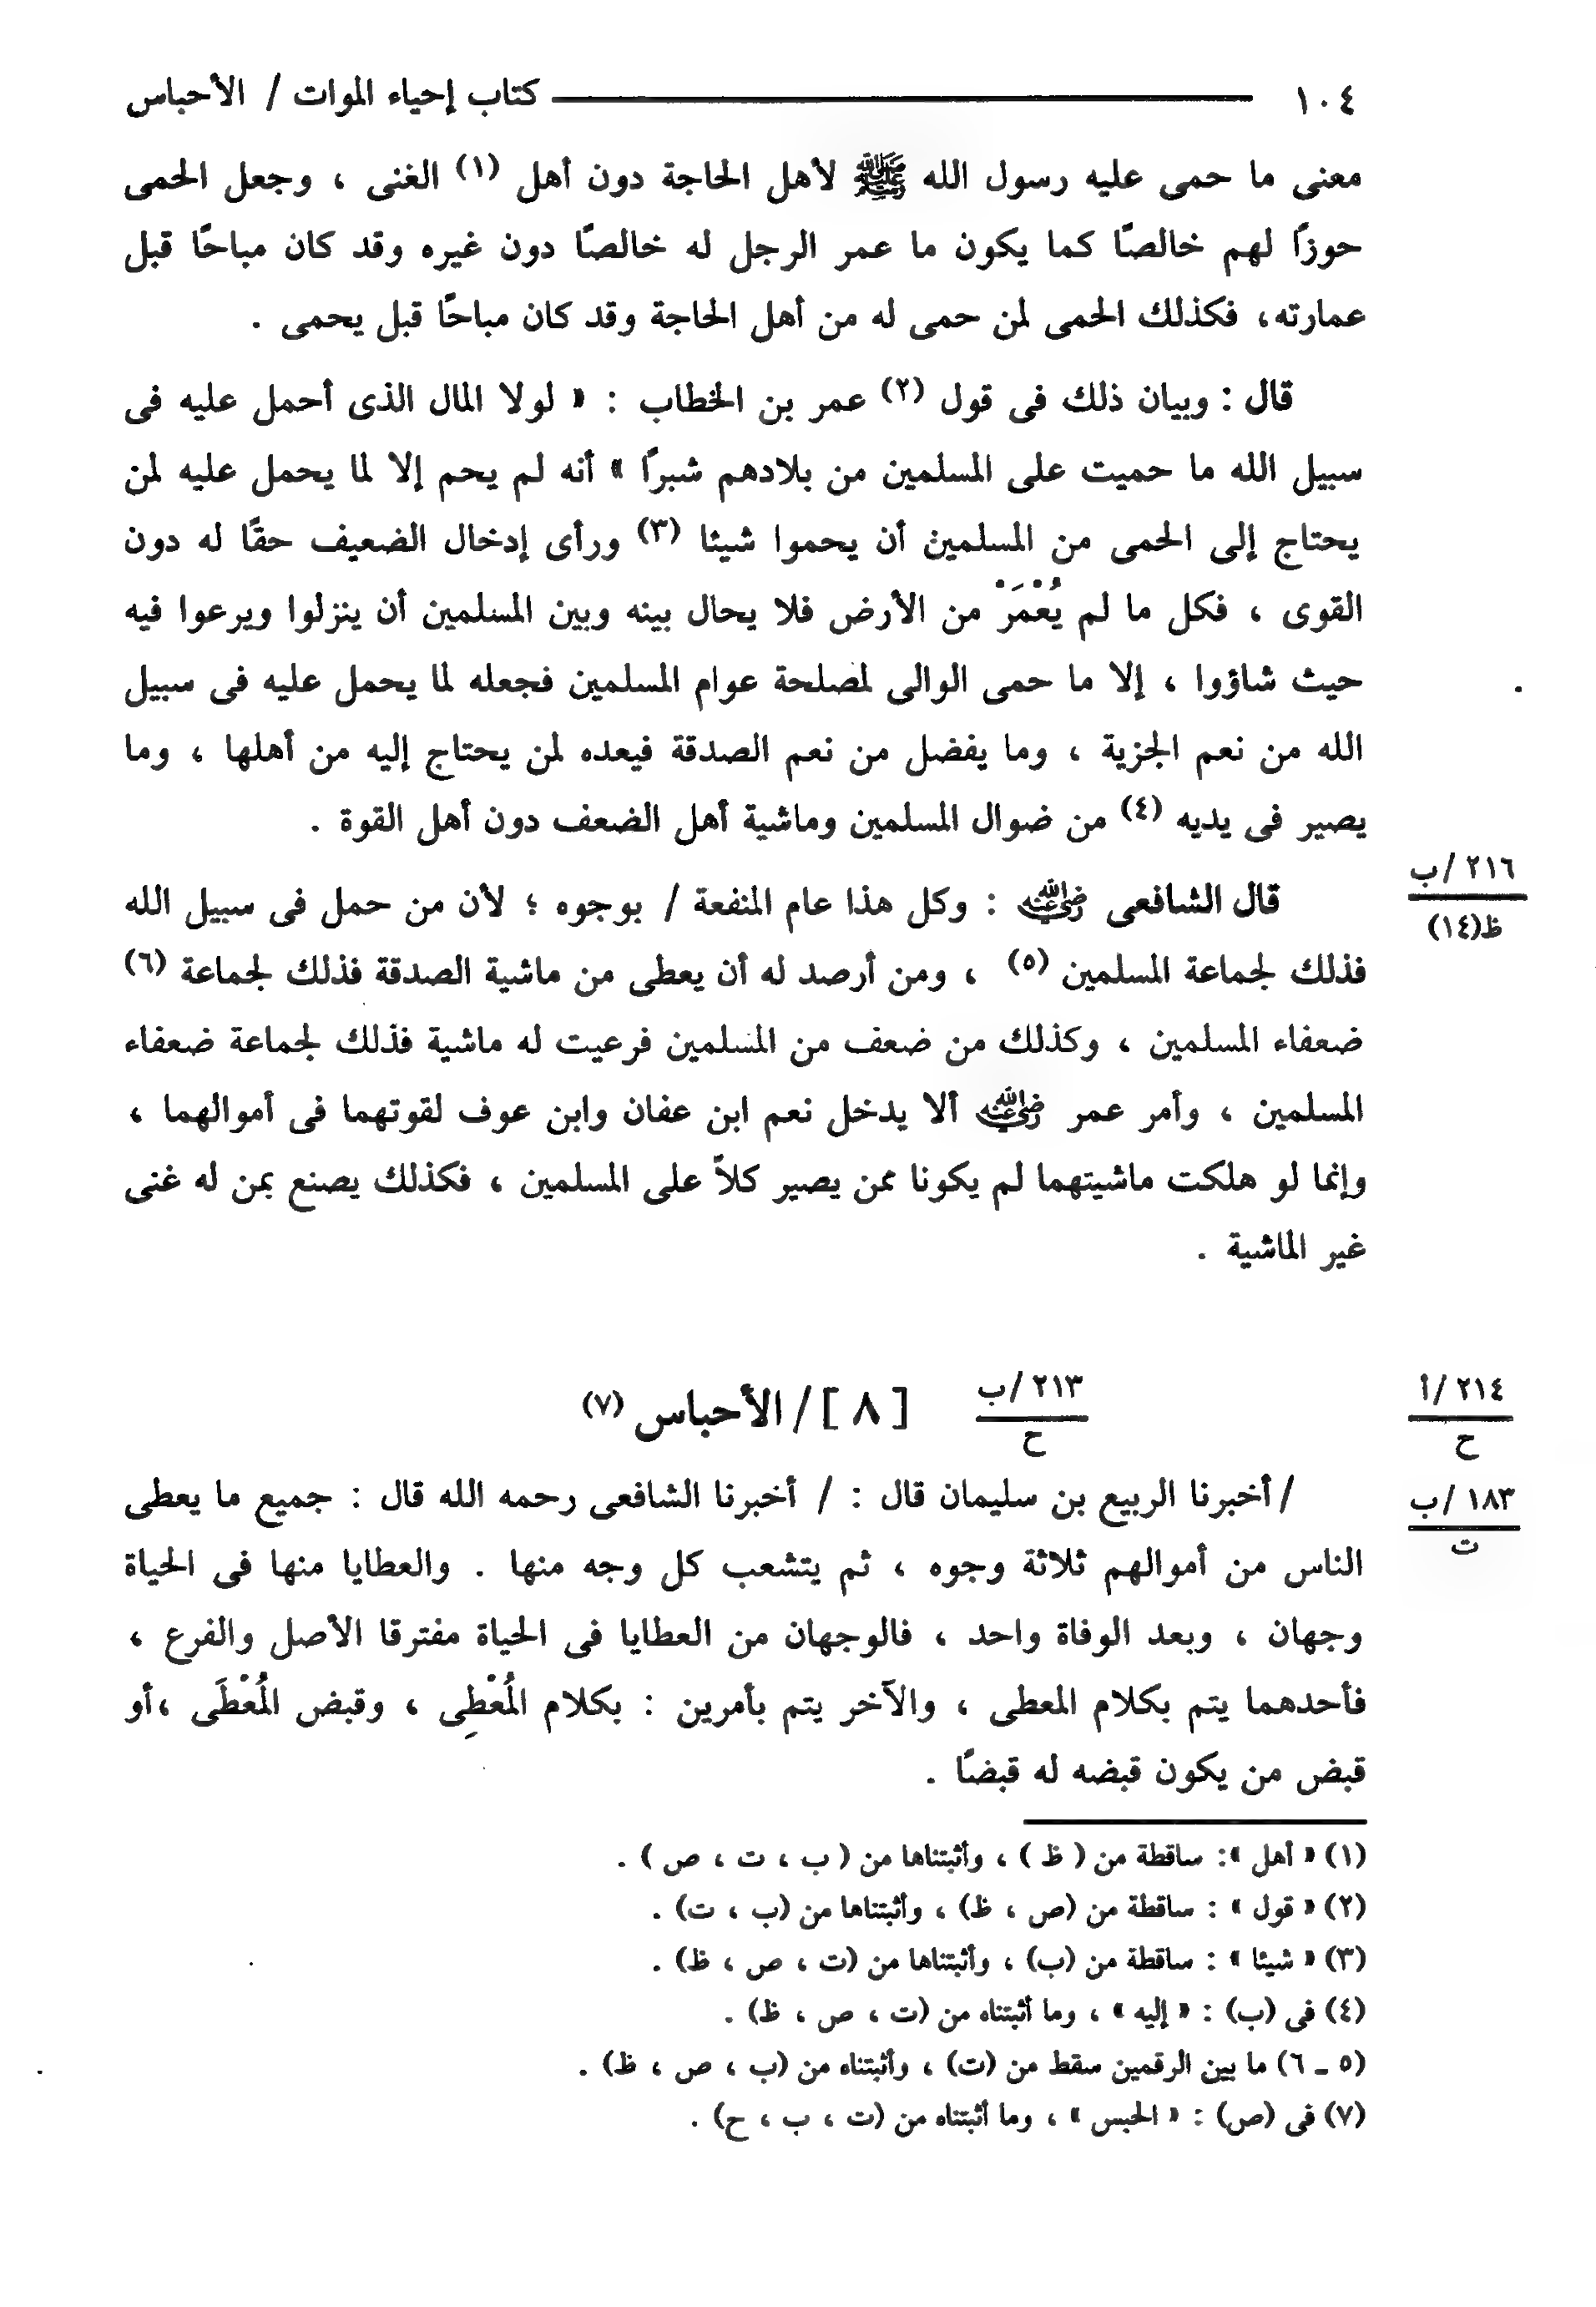 ١٠٤ كتاب إحياء الموات / الأحباس
معنى ما حمى عليه رسول الله ﷺ لأهل الحاجة دون أهل (١) الغنى ، وجعل الحمى
حوزًا لهم خالصًا كما يكون ما عمر الرجل له خالصًا دون غيره وقد كان مباحًا قبل
عمارته، فكذلك الحمى لمن حمى له من أهل الحاجة وقد كان مباحًا قبل يحمى .
قال : وبيان ذلك فى قول (٢) عمر بن الخطاب : « لولا المال الذى أحمل عليه فى
سبيل الله ما حميت على المسلمين من بلادهم شبرًا » أنه لم يحم إلا لما يحمل عليه لمن
يحتاج إلى الحمى من المسلمين أن يحموا شيئا (٣) ورأى إدخال الضعيف حقًا له دون
القوى ، فكل ما لم يُعْمَرْ من الأرض فلا يحال بينه وبين المسلمين أن ينزلوا ويرعوا فيه
حيث شاؤوا ، إلا ما حمى الوالى لمصلحة عوام المسلمين فجعله لما يحمل عليه فى سبيل
الله من نعم الجزية ، وما يفضل من نعم الصدقة فيعده لمن يحتاج إليه من أهلها ، وما
يصير فى يديه (٤) من ضوال المسلمين وماشية أهل الضعف دون أهل القوة .
٢١٦ /ب
ظ(١٤)
قال الشافعى رضي الله عنه : وكل هذا عام المنفعة / بوجوه ؛ لأن من حمل فى سبيل الله
فذلك لجماعة المسلمين (٥) ، ومن أرصد له أن يعطى من ماشية الصدقة فذلك لجماعة (٦)
ضعفاء المسلمين ، وكذلك من ضعف من المسلمين فرعيت له ماشية فذلك لجماعة ضعفاء
المسلمين ، وأمر عمر رضي الله عنه ألا يدخل نعم ابن عفان وابن عوف لقوتهما فى أموالهما ،
وإنما لو هلكت ماشيتهما لم يكونا ممن يصير كلاً على المسلمين ، فكذلك يصنع بمن له غنى
غير الماشية .
٢١٤ /أ
ح
٢١٣ /ب
ح
[ ٨ ] / الأحباس (٧)
١٨٣ /ب
ت
/ أخبرنا الربيع بن سليمان قال : / أخبرنا الشافعى رحمه الله قال : جميع ما يعطى
الناس من أموالهم ثلاثة وجوه ، ثم يتشعب كل وجه منها . والعطايا منها فى الحياة
وجهان ، وبعد الوفاة واحد ، فالوجهان من العطايا فى الحياة مفترقا الأصل والفرع ،
فأحدهما يتم بكلام المعطى ، والآخر يتم بأمرين : بكلام المُعْطِى ، وقبض المُعْطَى ،أو
قبض من يكون قبضه له قبضًا .
(١) « أهل »: ساقطة من ( ظ ) ، وأثبتناها من ( ب ، ت ، ص ) .
(٢) « قول » : ساقطة من (ص ، ظ) ، وأثبتناها من (ب ، ت) .
(٣) « شيئا » : ساقطة من (ب) ، وأثبتناها من (ت ، ص ، ظ) .
(٤) فى (ب) : « إليه » ، وما أثبتناه من (ت ، ص ، ظ) .
(٥ ـ ٦) ما بين الرقمين سقط من (ت) ، وأثبتناه من (ب ، ص ، ظ) .
(٧) فى (ص) : « الحبس » ، وما أثبتناه من (ت ، ب ، ح) .